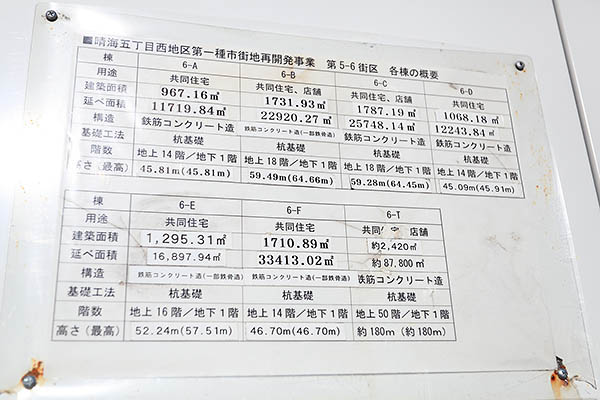 ■晴海五丁目西地区第一種市街地再開発事業 第5-6街区 各棟の概要
棟 6-A 6-B 6-C 6-D
用途 共同住宅 共同住宅、店舗 共同住宅、店舗 共同住宅
建築面積 967.16㎡ 1731.93㎡ 1787.19㎡ 1068.18㎡
延べ面積 11719.84㎡ 22920.27㎡ 25748.14㎡ 12243.84㎡
構造 鉄筋コンクリート造 鉄筋コンクリート造(一部鉄骨造) 鉄筋コンクリート造 鉄筋コンクリート造
基礎工法 杭基礎 杭基礎 杭基礎 杭基礎
階数 地上14階/地下1階 地上18階/地下1階 地上18階/地下1階 地上14階/地下1階
高さ(最高) 45.81m(45.81m) 59.49m(64.66m) 59.28m(64.45m) 45.09m(45.91m)
棟 6-E 6-F 6-T
用途 共同住宅 共同住宅 共同 店舗
建築面積 1,295.31㎡ 1710.89㎡ 約2,420㎡
延べ面積 16,897.94㎡ 33413.02㎡ 約87,800㎡
構造 鉄筋コンクリート造(一部鉄骨造) 鉄筋コンクリート造(一部鉄骨造) 鉄筋コンクリート造
基礎工法 杭基礎 杭基礎 杭基礎
階数 地上16階/地下1階 地上14階/地下1階 地上50階/地下1階
高さ(最高) 52.24m(57.51m) 46.70m(46.70m) 約180m(約180m)